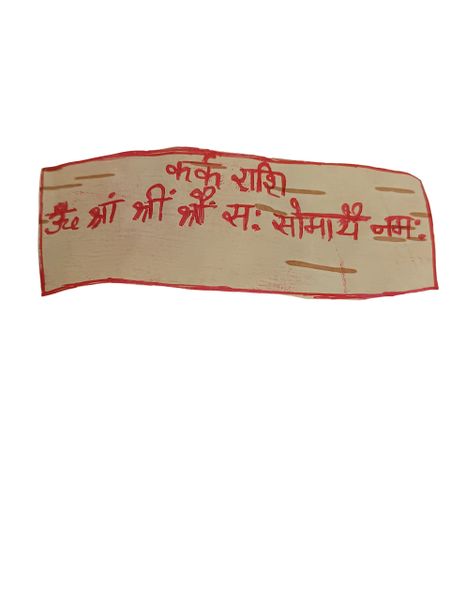 कर्क राशि
ॐ श्रां श्रीं श्रौं सः सोमायै नमः